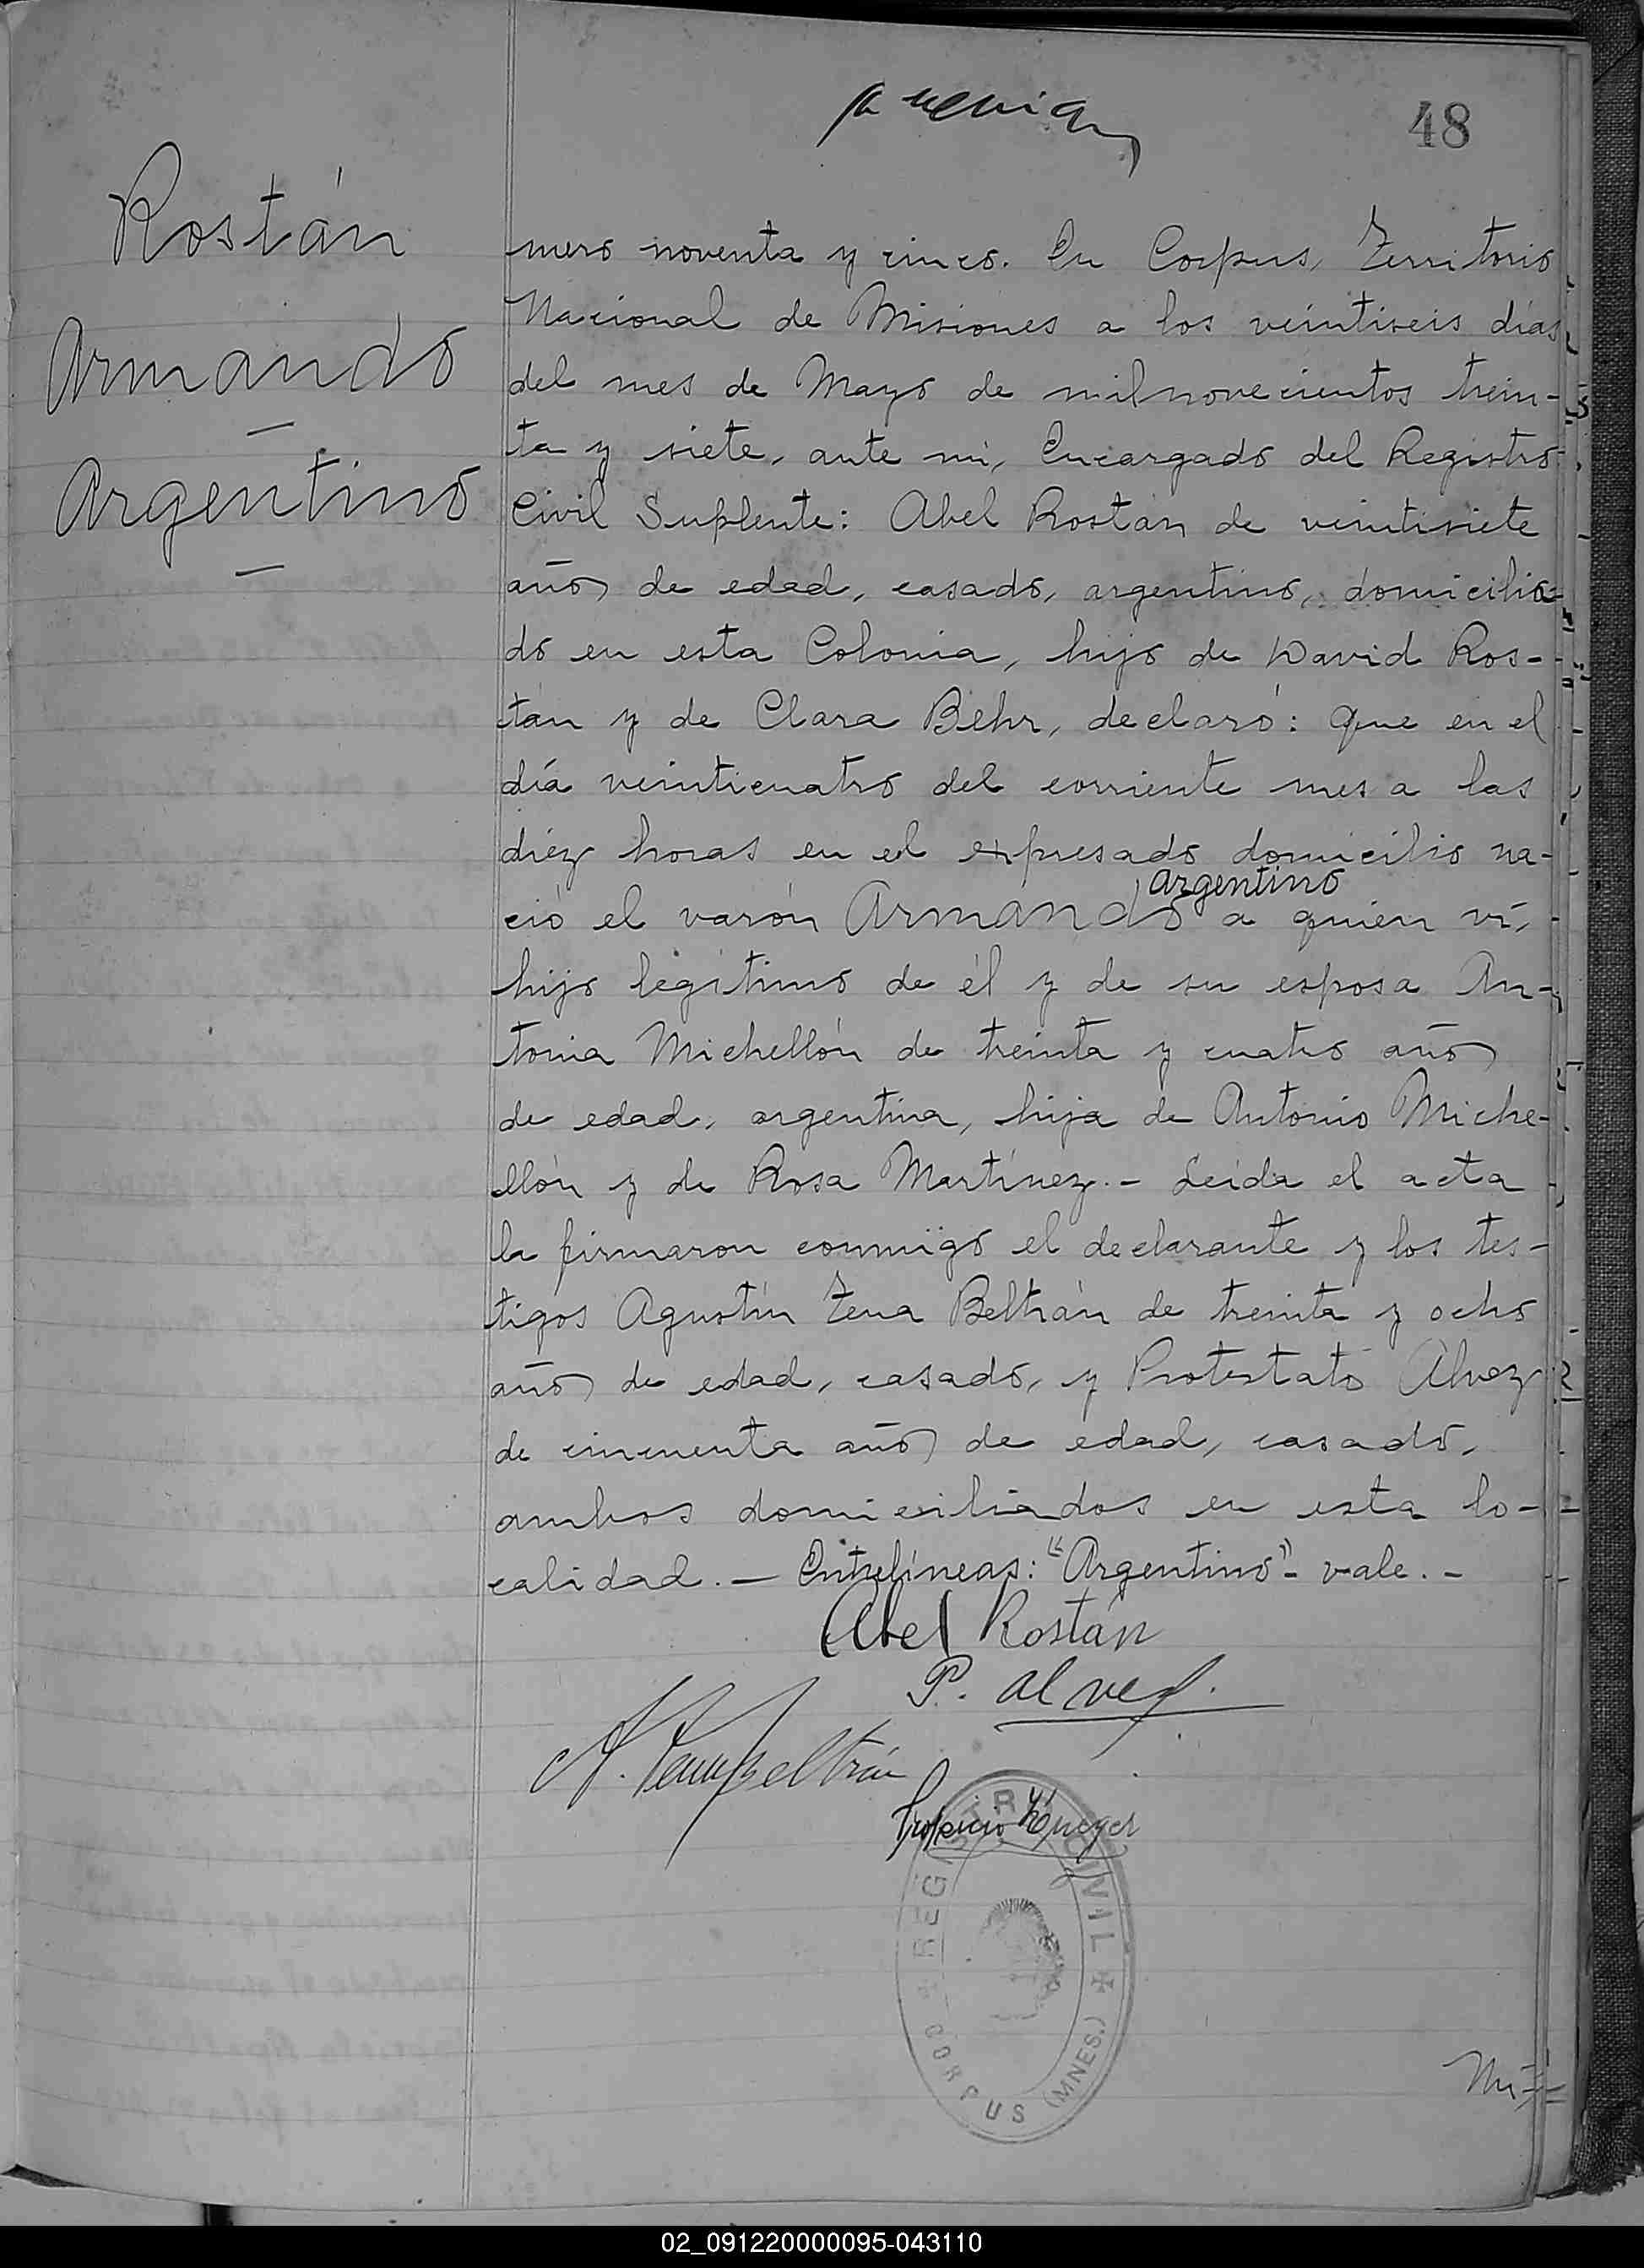 48
Rostán
Armando
Argentino
mero noventa y cinco. En Corpus, Territorio
Nacional de Misiones a los veintiseis días
del mes de Mayo de mil novecientos trein-
ta y siete, ante mi, Encargado del Registro
Civil Suplente: Abel Rostán de veintisiete
años de edad, casado, argentino, domicilia-
do en esta Colonia, hijo de David Ros-
tán y de Clara Behr, declaró: Que en el
día veinticuatro del corriente mes a las
diéz horas en el expresado domicilio na-
argentino
ció el varón Armando a quien ví,
hijo legítimo de él y de su esposa An-
tonia Michellón de treinta y cuatro años
de edad, argentina, hija de Antonio Miche-
llón y de Rosa Martínez.- Leída el acta
la firmaron conmigo el declarante y los tes-
tigos Agustín Zena Beltrán de treinta y ocho
años de edad, casado, y Protestato Alvez
de cincuenta años de edad, casado,
ambos domiciliados en esta lo-
calidad.— Entrelíneas: "Argentino"- vale.-
Abel Rostán
P. Alvez.
A. Zena Beltrán
REGISTRO CIVIL
CORPUS (MNES.)
Nú-
02_091220000095-043110